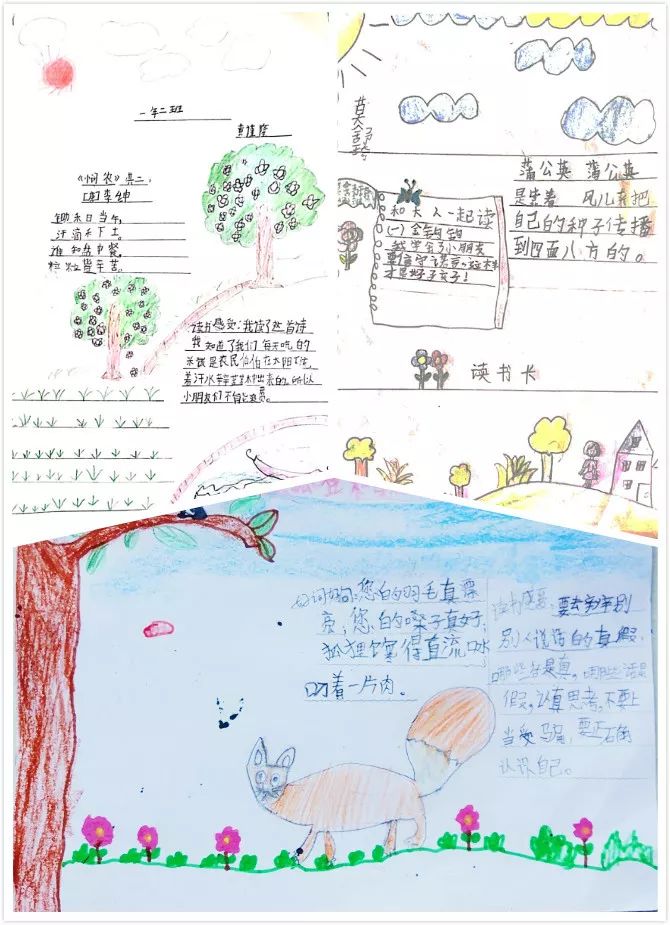 一年二班
《悯农》其二
[唐]李绅
锄禾日当午,
汗滴禾下土。
谁知盘中餐,
粒粒皆辛苦。
读书感受:我读了这首诗
我知道了我们每天吃的
米饭是农民伯伯在太阳下
着汗水辛苦
小朋友们不
和大人一起读
(一)金钩钩
我学会了小朋友
要信守诺言。这样
才是好子女子!
蒲公英 蒲公英
是靠着 风儿来把
自己的种子传播
到四面八方的。
读书卡
好词好句:您的羽毛真漂
亮,您的嗓子真好,
狐狸馋得直流口水
叼着一片肉。
读书感受:要去分辨别
别人说话的真假,
哪些话是真,哪些话是
假,认真思考,不要上
当受骗,要正确
认识自己。